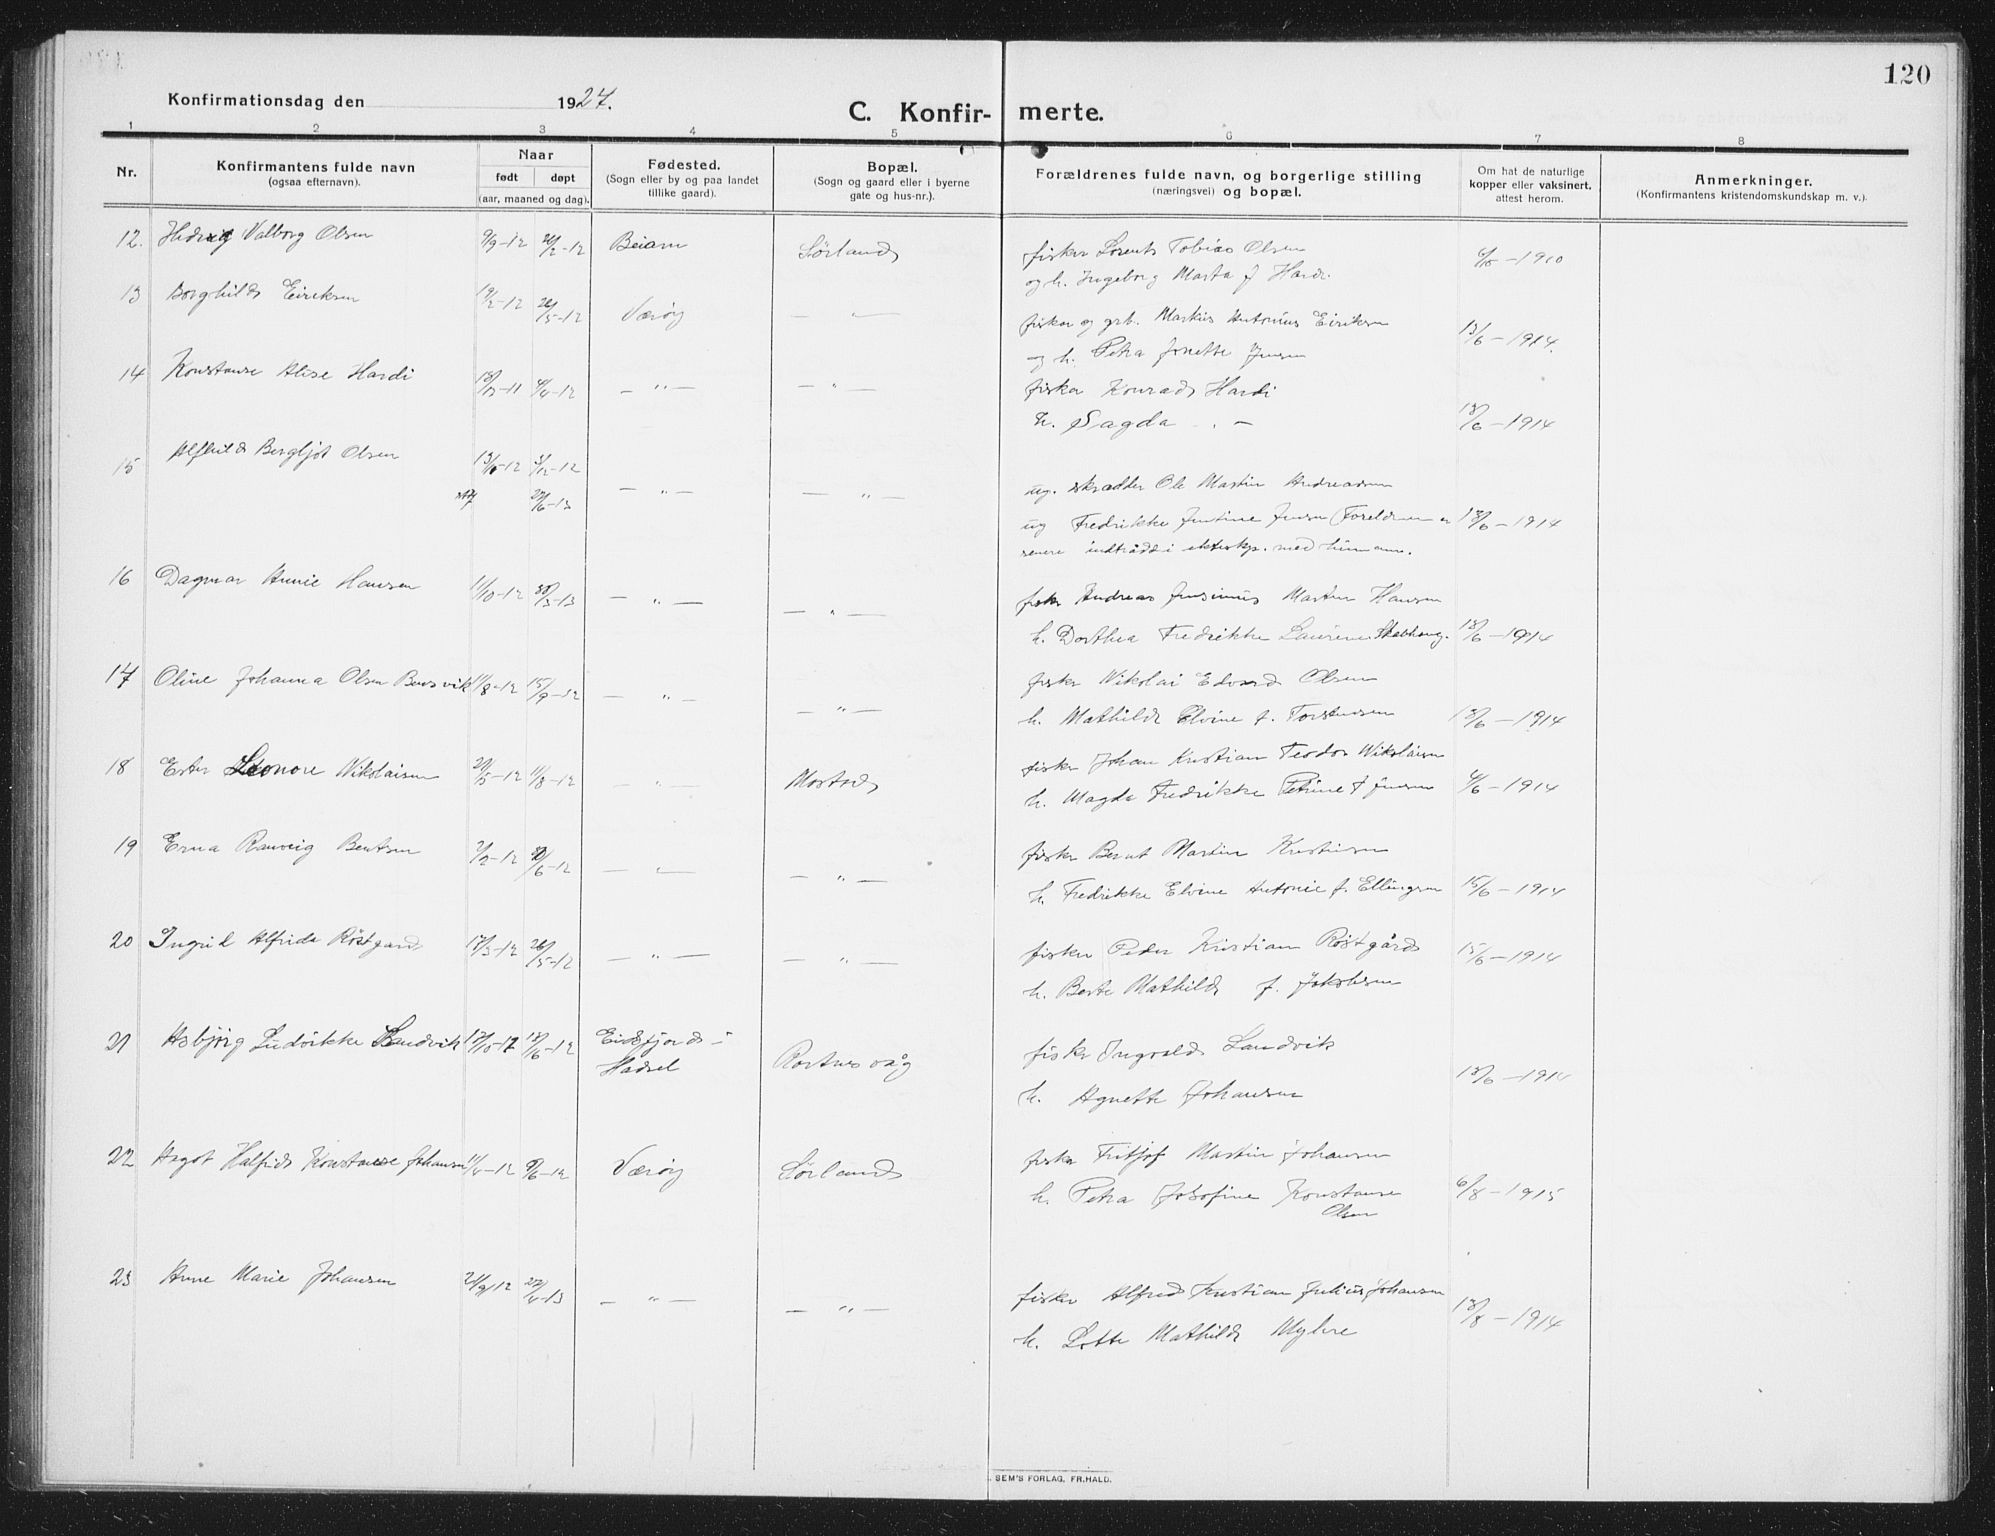 120
Konfirmationsdag den 1927.
C. Konfir- merte.
1 2 3 4 5 6 7 8
Nr.
Konfirmantens fulde navn
(ogsaa efternavn).
Naar
født døpt
(aar, maaned og dag).
Fødested.
(Sogn eller by og paa landet
tillike gaard).
Bopæl.
(Sogn og gaard eller i byerne
gate og hus-nr.).
Forældrenes fulde navn, og borgerlige stilling
(næringsvei) og bopæl.
Om hat de naturlige
kopper eller vaksinert,
attest herom.
Anmerkninger.
(Konfirmantens kristendomskundskap m. v.).
12. Valborg Olsen 9/9-12 -12 Beiarn Sørland fisker Lorents Tobias Olsen -1910
og h. Ingeborg Marta f. Hardi
13 Borghild Eiriksen 19/2-12 26/5-12 Værøy — " — fisker og grb. Markus Antonius Eiriksen 13/6-1914.
og h. Petra Jonette Jensen
14 Konstanse Alise Hardi -11 /4-12 — " — — " — fisker Konrad Hardi
h. Sagda - 13/6-1914
15 Alfhild Bergljot Olsen -12 /12-12
27/6-13 — " — — " — ug. skrædder Ole Martin Andreassen
ug Fredrikke Justine Jensen (Foreldrene er 13/6-1914
senere indtrådt i ektesk. med hinanen.
16 Dagmar Annie Hansen 11/10-12 30/3-13 — " — — " — fisker Andreas Martin Hansen
h. Dorthea Fredrikke Laurense 13/6-1914
17 Oline Johanna Olsen 11/8-12 15/9-12 — " — — " — fisker Nikolai Edvard Olsen
h. Mathilde Elvine f. Torstensen 13/6-1914
18 Ester Leonore Nikolaisen /5-12 11/8-12 — " — Mostad fisker Johan Kristian Teodor Nikolaisen
h. Magda Fredrikke Petrine f Jensen /6-1914
19 Erna Ranveig Bentsen 2/2-12 /6-12 — " — — " — fisker Bernt Martin Kristensen
h. Fredrikke Elvine Antonie f. Ellingsen 15/6-1914
20 Ingrid Alfrida Röstgard 17/3-12 26/5-12 — " — — " — fisker Peder Kristian Röstgård 15/6-1914
h. Berte Mathilde f. Jakobsen
21 Asbjørg Ludvikke Sandvik -12 /6-12 Eidsfjord i
Hadsel Røstnesvåg fisker Ingvald Sandvik
h. Agnette Johansen 13/6-1914
22 Aagot Halfrid Konstanse Johansen 11/4-12 9/6-12 Værøy Sørland fisker Fritjof Martin Johansen
h. Petra Josofine Konstanse 6/8-1915
Olsen
23 Anne Marie Johansen 21/9 12 27/4-13 — " — — " — fisker Alfred Kristian Julius Johansen 13/8-1914
h. Lotte Mathilde Myhre
SEM'S FORLAG, FR.HALD.